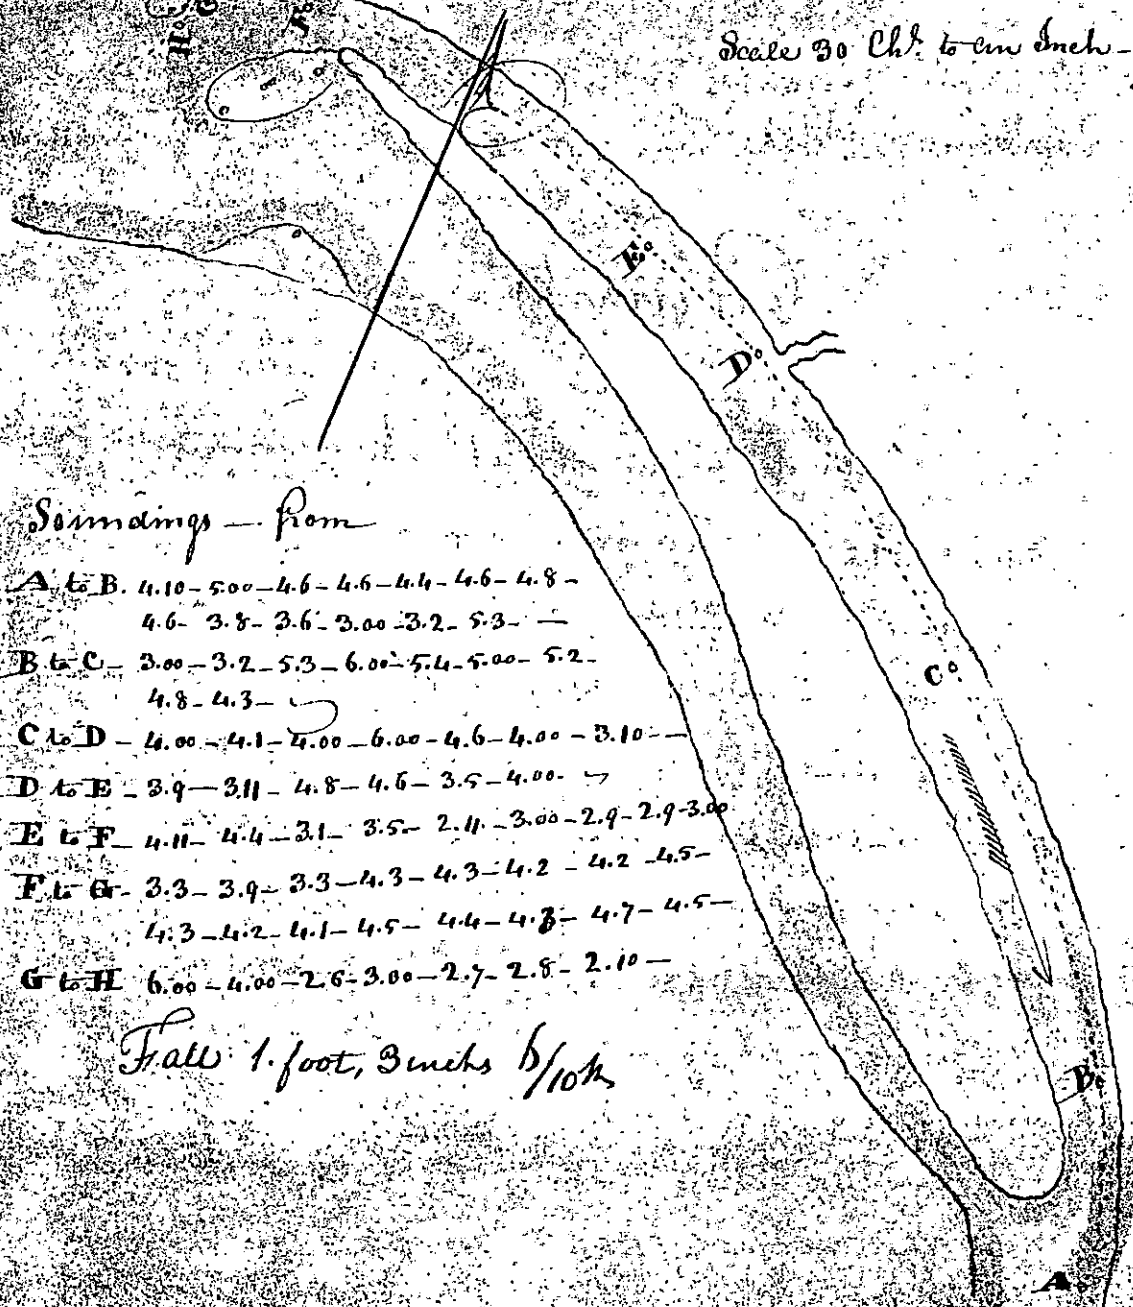 H.
G
F.
Scale 30 Chs. to an Inch -
E.
D.
C.
B.
A.
Soundings — from
A to B. 4.10 - 5.00 - 4.6 - 4.6 - 4.4 - 4.6 - 4.8 -
4.6 - 3.8 - 3.6 - 3.00 - 3.2 - 5.3 - —
B to C - 3.00 - 3.2 - 5.3 - 6.00 - 5.4 - 5.00 - 5.2 -
4.8 - 4.3 -
C to D - 4.00 - 4.1 - 4.00 - 6.00 - 4.6 - 4.00 - 3.10 - —
D to E - 3.9 - 3.11 - 4.8 - 4.6 - 3.5 - 4.00 -
E to F - 4.11 - 4.4 - 3.1 - 3.5 - 2.11 - 3.00 - 2.9 - 2.9 - 3.00
F to G - 3.3 - 3.9 - 3.3 - 4.3 - 4.3 - 4.2 - 4.2 - 4.5 -
4.3 - 4.2 - 4.1 - 4.5 - 4.4 - 4.3 - 4.7 - 4.5 —
G to H 6.00 - 4.00 - 2.6 - 3.00 - 2.7 - 2.8 - 2.10 —
Fall 1. foot, 3 inchs